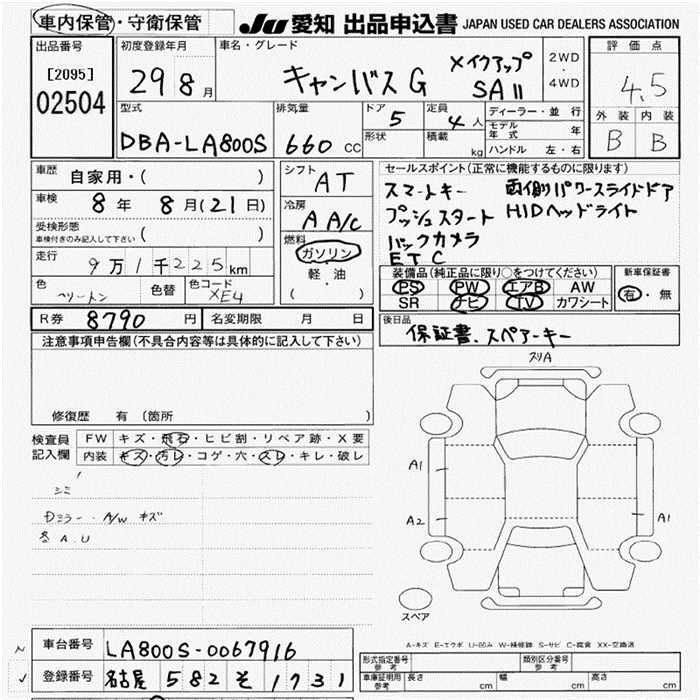 車内保管・守衛保管 JU 愛知 出品申込書 JAPAN USED CAR DEALERS ASSOCIATION
出品番号 [2095] 02504
初度登録年月 29 8月
車名・グレード キャンバスG メイクアップ SAII
2WD・4WD
評価点 4.5
外装 内装
B B
型式 DBA-LA800S
排気量 660 CC
ドア 5 形状
定員 4人 積載 kg
ディーラー・並行
モデル年式 年
ハンドル 左・右
車歴 自家用・( )
車検 8年 8月(21日)
受検形態 車検付きのみ記入して下さい ( )
走行 9万1千225km
色 ペリートン 色替 色コード XE4
シフト AT
冷房 A A/C
燃料 ガソリン 軽・油 ( )
セールスポイント(正常に機能するものに限ります)
スマートキー 両側パワースライドドア
プッシュスタート HIDヘッドライト
バックカメラ
ETC
装備品(純正品に限り○をつけてください)
PS PW エアB AW
SR ナビ TV カワシート
新車保証書 有・無
R券 8790円 名変期限 月 日
後日品 保証書、スペアーキー
注意事項申告欄(不具合内容等は具体的に記入して下さい)
修復歴 有 (箇所
検査員記入欄
FW キズ・飛石・ヒビ割・リペア跡・X要
内装 キズ・汚レ・コゲ・穴・スレ・キレ・破レ
シミ
Dミラー・A/W キズ
A.U
スリA
A1
A2
A1
スペア
A-キズ E-エクボ U-凹み W-補修跡 S-サビ C-腐食 XX-交換済
車台番号 LA800S-0067916
登録番号 名古屋 582 そ 1731
形式指定番号 参考 類別区分番号 参考
車庫証明用 参考 長さ cm 幅 cm 高さ cm